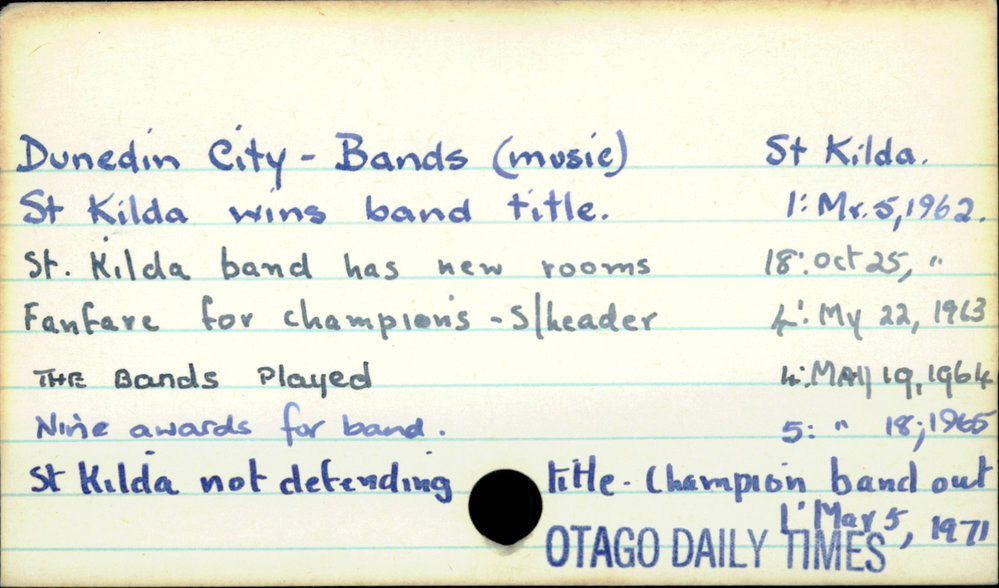 Dunedin City - Bands (music) St Kilda.
St Kilda wins band title. 1: Mr. 5, 1962.
St. Kilda band has new rooms 18: Oct 25, "
Fanfare for champions - S/header 4: My 22, 1963
THE Bands Played 4: MAY 19, 1964
Nine awards for band. 5: " 18, 1965
St Kilda not defending title - Champion band out
1: Mar 5, 1971
OTAGO DAILY TIMES